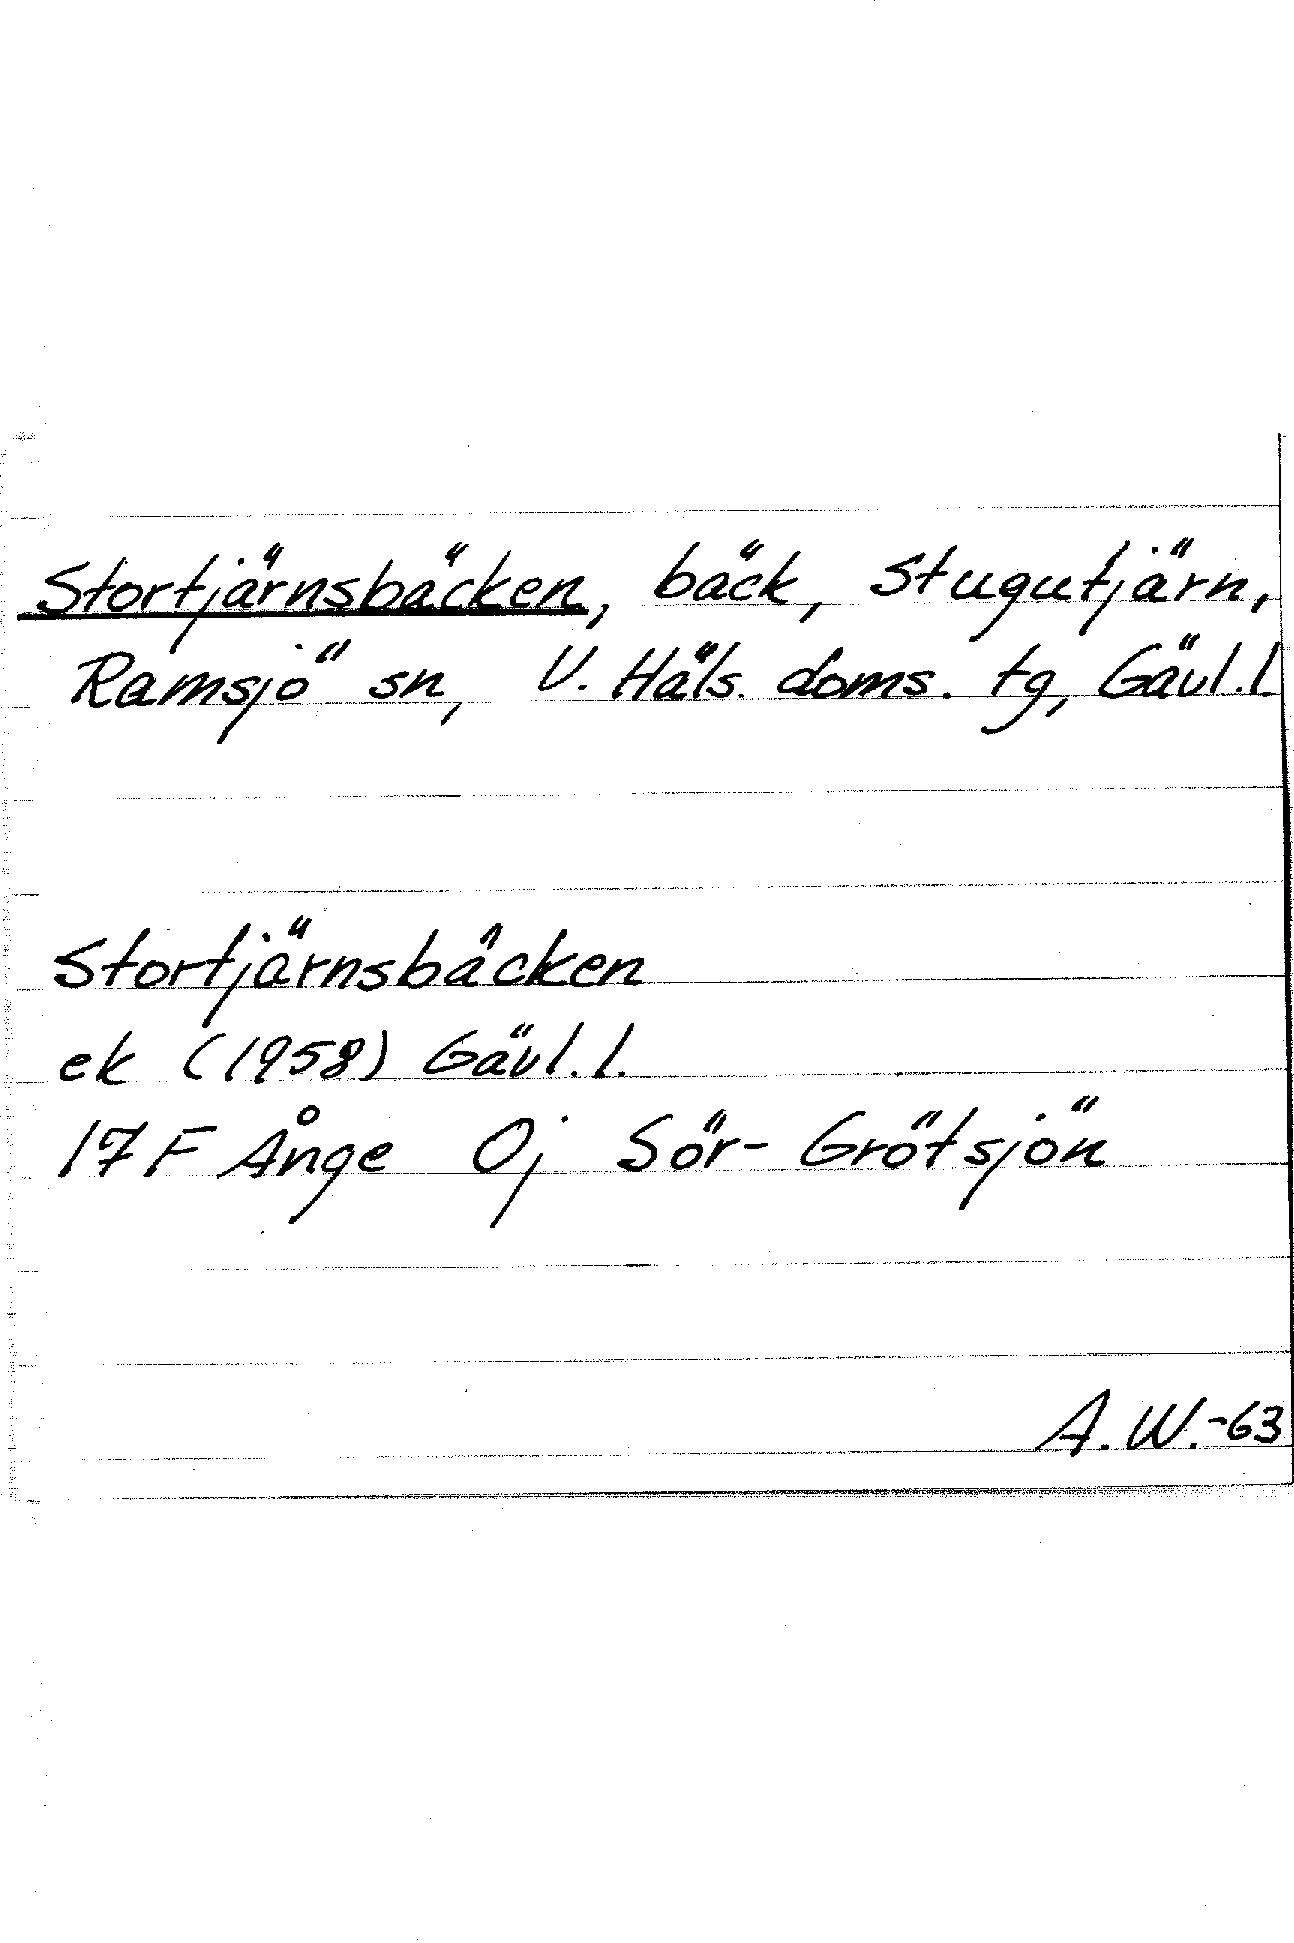 Stortjärnsbäcken, bäck, Stugutjärn,
Ramsjö sn, V. Häls. doms. tg, Gävl.l.
Stortjärnsbäcken
ek (1958) Gävl.l.
17F Ånge 0j Sör-Grötsjön
A.W.-63